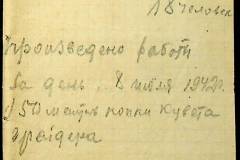 18 человек
Произведено работ
за день 8 июля 1942г.
150 метров копки кувета
грейдера